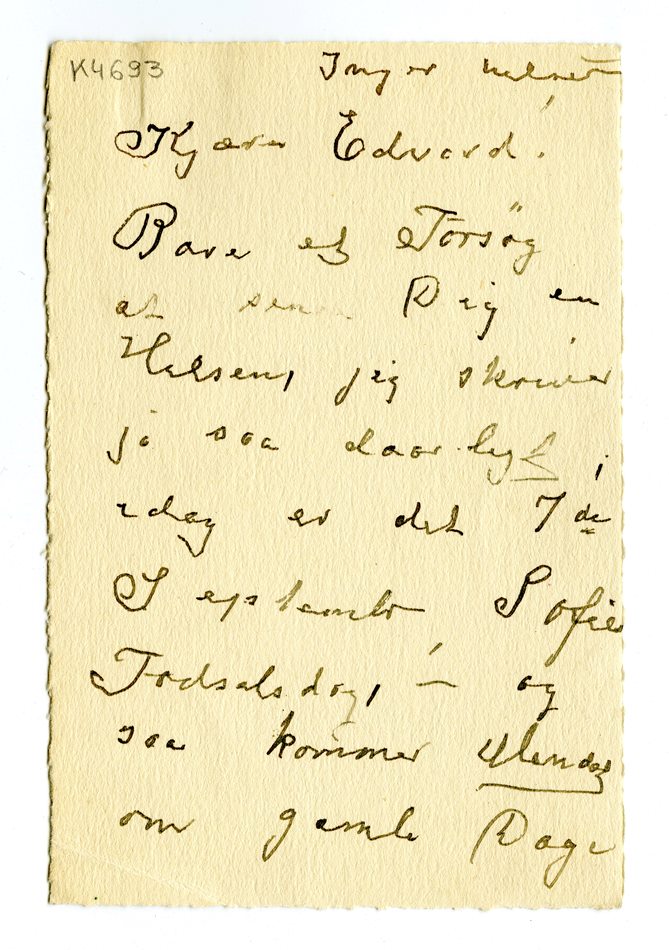 K4693
Inger
Kjære Edvard.
Bare et Forsøg
at sen Dig en
Helsen, jig skriver
jo saa daarligt,
idag er det 7de
September Sofies
Fodselsdag, — og
saa kommer
om gamle Dage